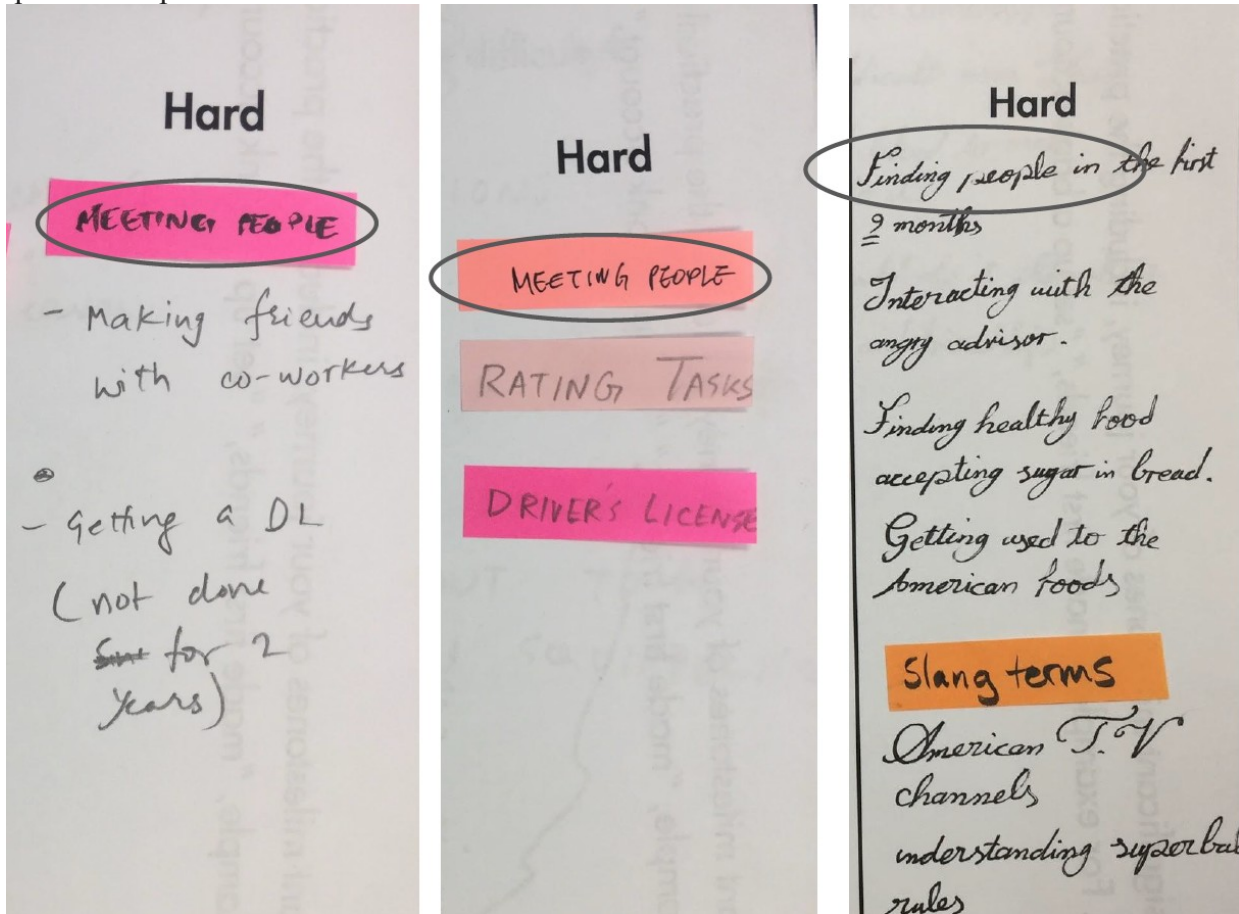 Hard
MEETING PEOPLE
- Making friends
with co-workers
- Getting a DL
(not done
for 2
years)
Hard
MEETING PEOPLE
RATING TASKS
DRIVER'S LICENSE
Hard
Finding people in the first
9 months
Interacting with the
angry advisor.
Finding healthy food
accepting sugar in bread.
Getting used to the
American foods
Slang terms
American T.V
channels
understanding superbal
rules